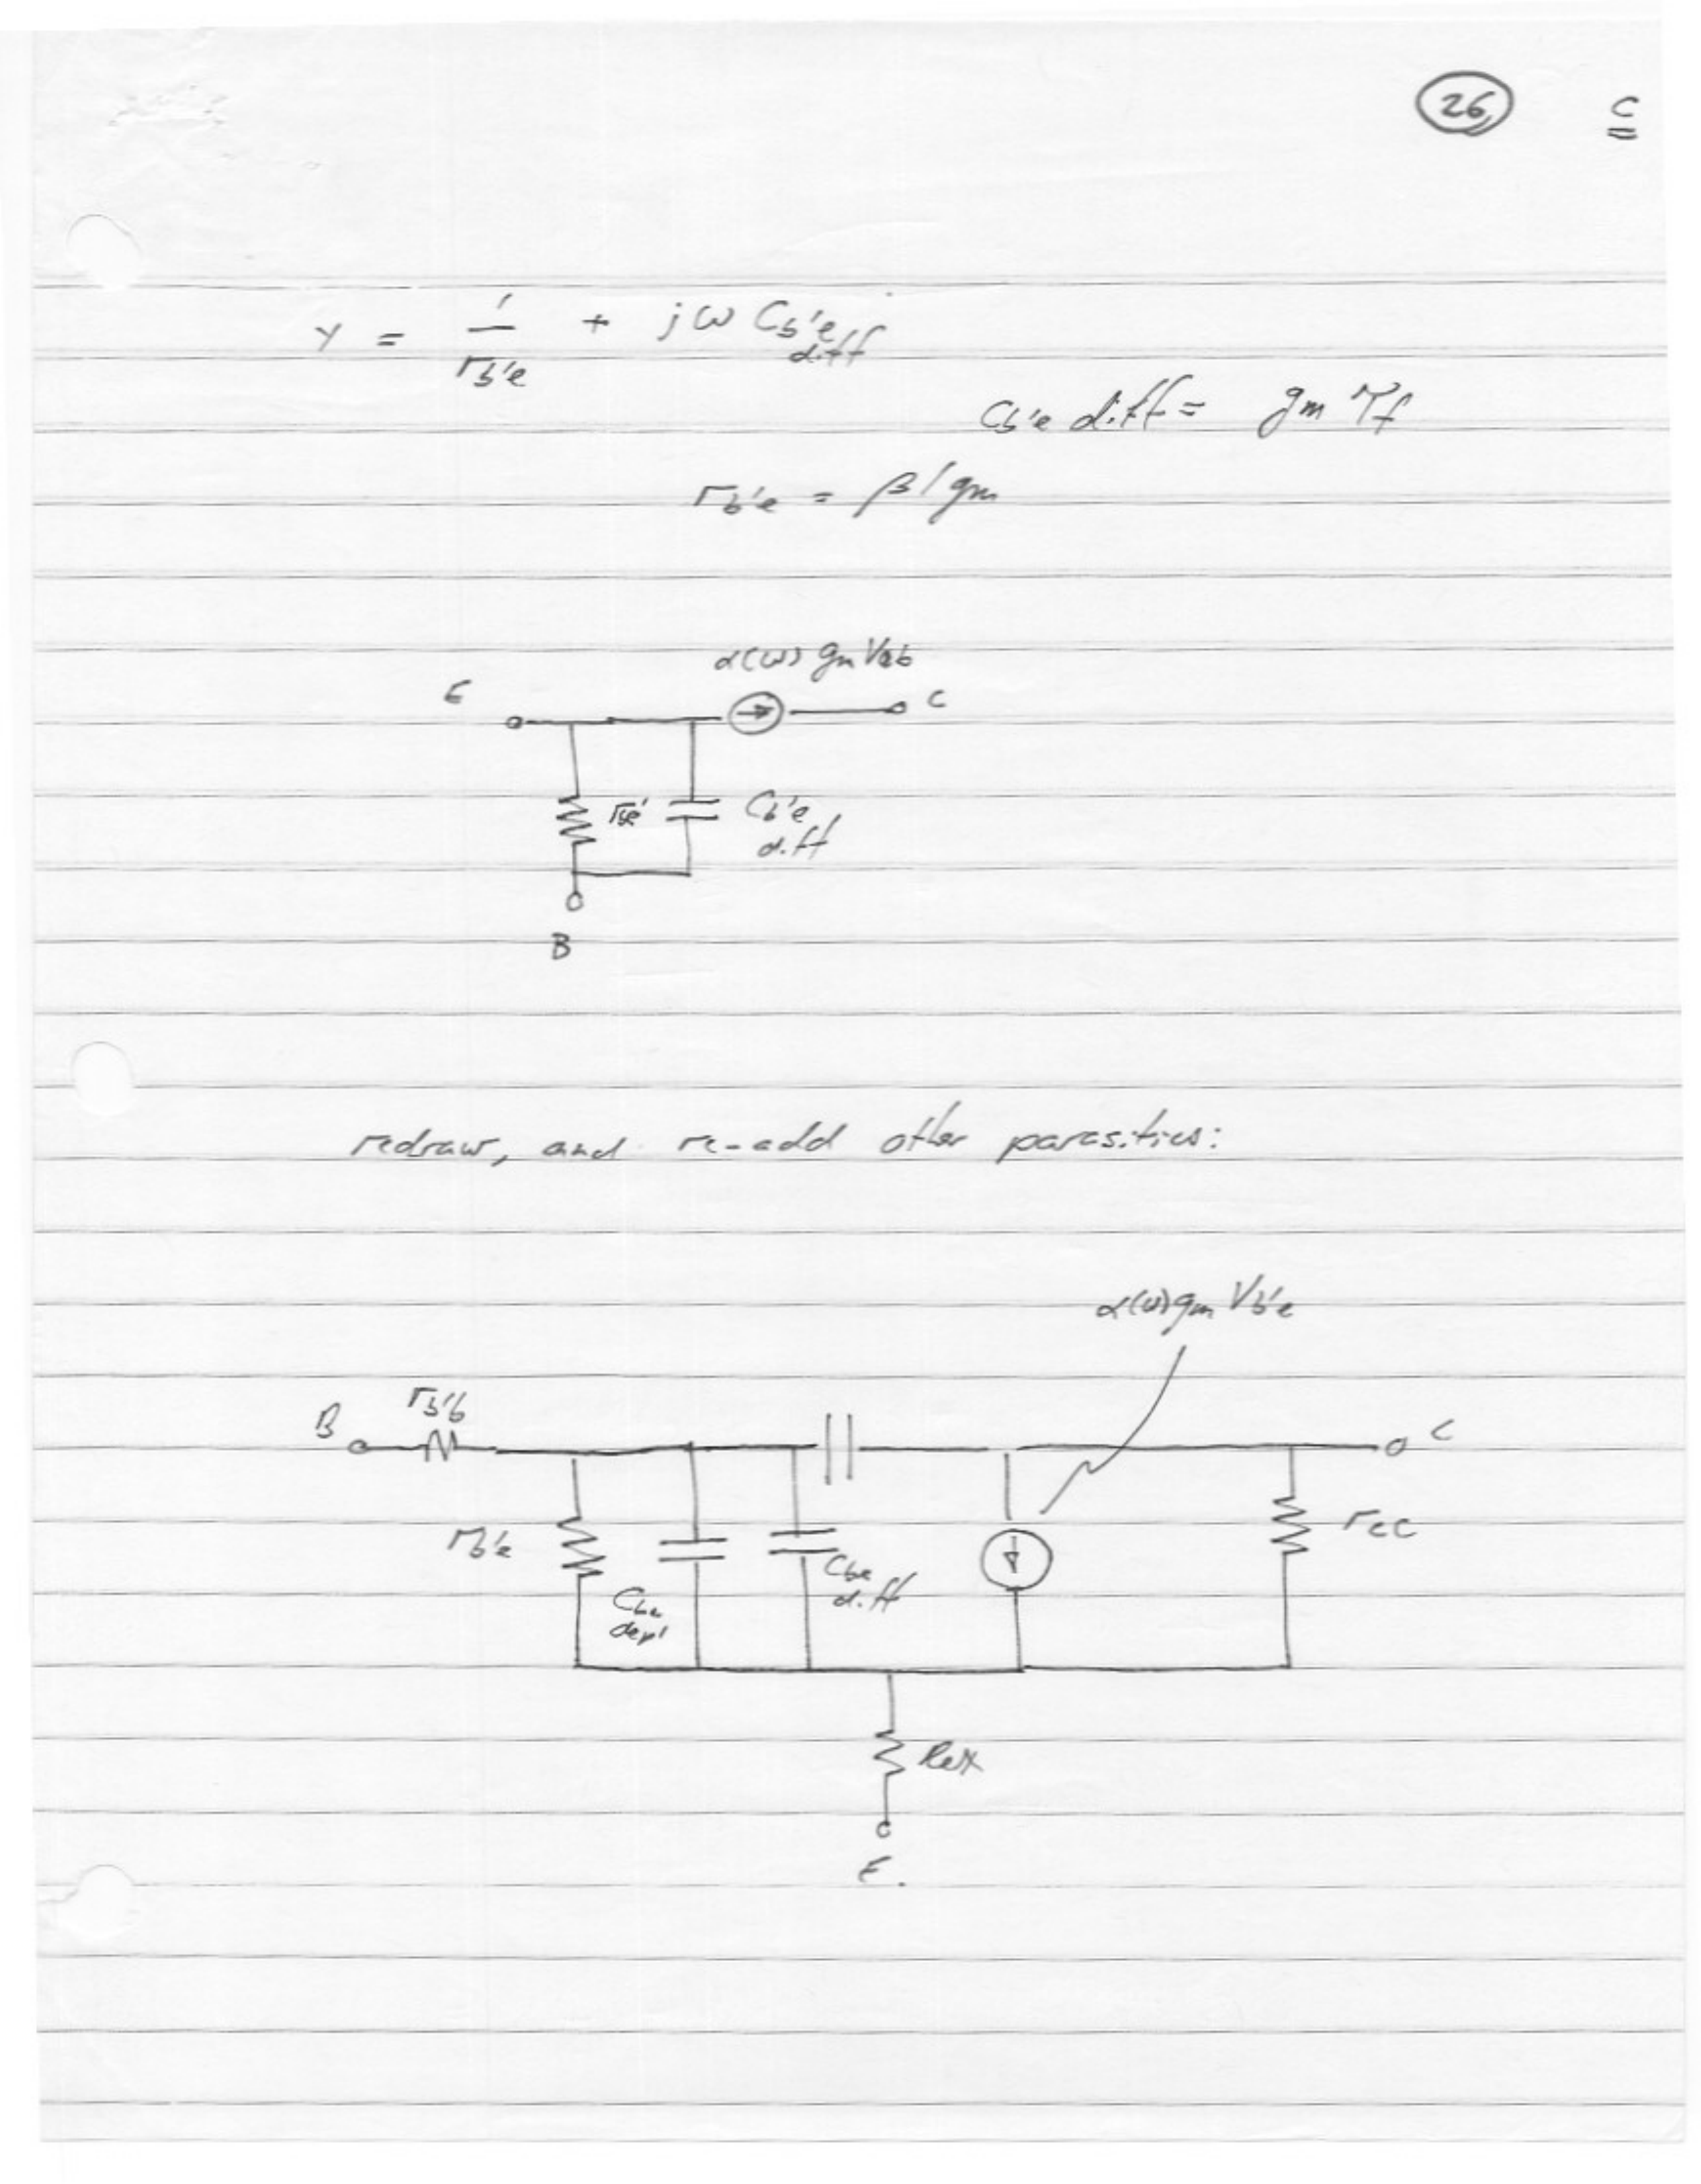 26 C
Y = 1/rb'e + jω Cb'e diff
Cb'e diff = gm τf
rb'e = β/gm
α(ω) gm Veb
E
C
Cb'e
diff
B
redraw, and re-add other parasitics:
α(ω)gm Vb'e
rb'b
B
C
rb'e
rcc
Cbe
diff
Cbe
depl
Rex
E.